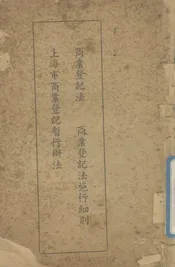 商業登記法
商業登記法施行細則
上海市商業登記暫行辦法